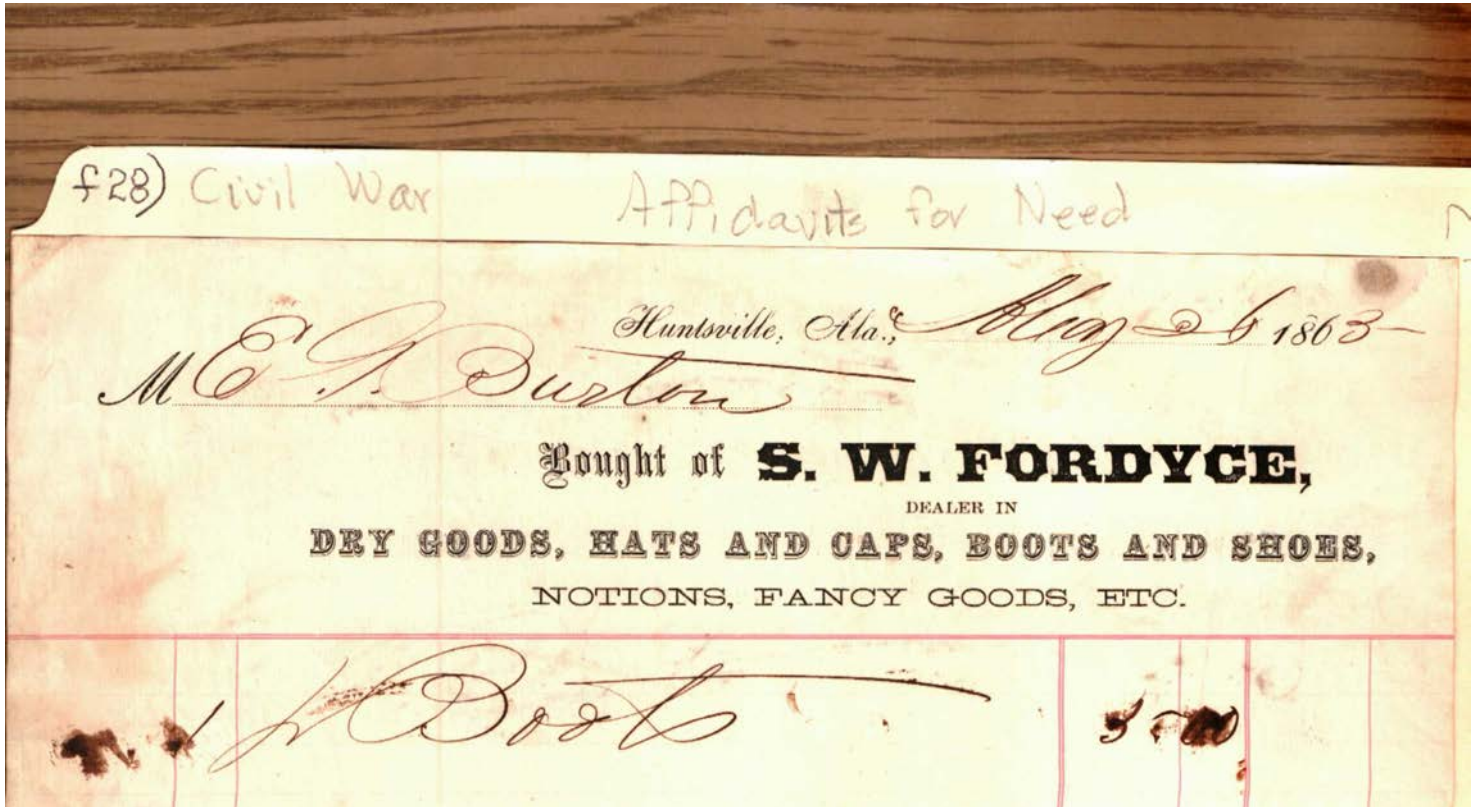 f28) Civil War Affidavits for Need
Huntsville, Ala., 26 1865
M E Burton
Bought of S. W. FORDYCE,
DEALER IN
DRY GOODS, HATS AND CAPS, BOOTS AND SHOES,
NOTIONS, FANCY GOODS, ETC.
1 pr Boots 5 00